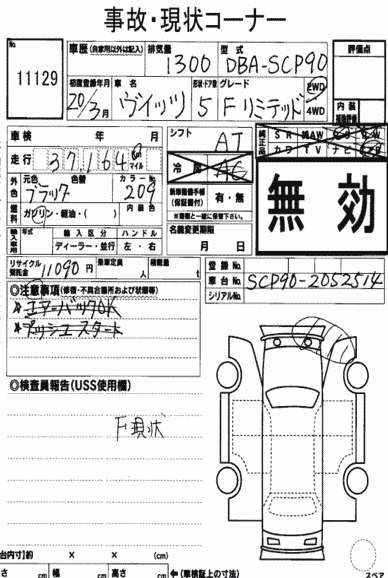 事故・現状コーナー
No. 11129
車歴 (自家用以外は記入)
排気量 1300
型式 DBA-SCP90
評価点
初度登録年月 20/3月
車名 ヴィッツ
形状・ドア数 5
グレード Fリミテッド
2WD
4WD
内装
補助評価
車検 年 月
シフト AT
純正品
SR 革 AW
カワ TV ナビ
走行 37,164 Km マイル
冷房 AC
外色 元色 ブラック
色替
カラーNo. 209
内装色
新車整備手帳 (保証書付) 有・無
※書類と一緒に保管下さい。
無効
燃料 ガソリン・軽油・( )
輸入車用 年式
輸入区分 ディーラー・並行
ハンドル 左・右
名義変更期限
月 日
リサイクル預託金 11090円
乗車定員 人
積載量 t
登録No.
車台No. SCP90-2052514
シリアルNo.
◎注意事項 (修復・不具合箇所および状態等)
エアーバックOK
プッシュスタート
◎検査員報告(USS使用欄)
F現状
台内寸]約 × × (cm)
さ cm 幅 cm 高さ cm ←(車検証上の寸法)
スペア